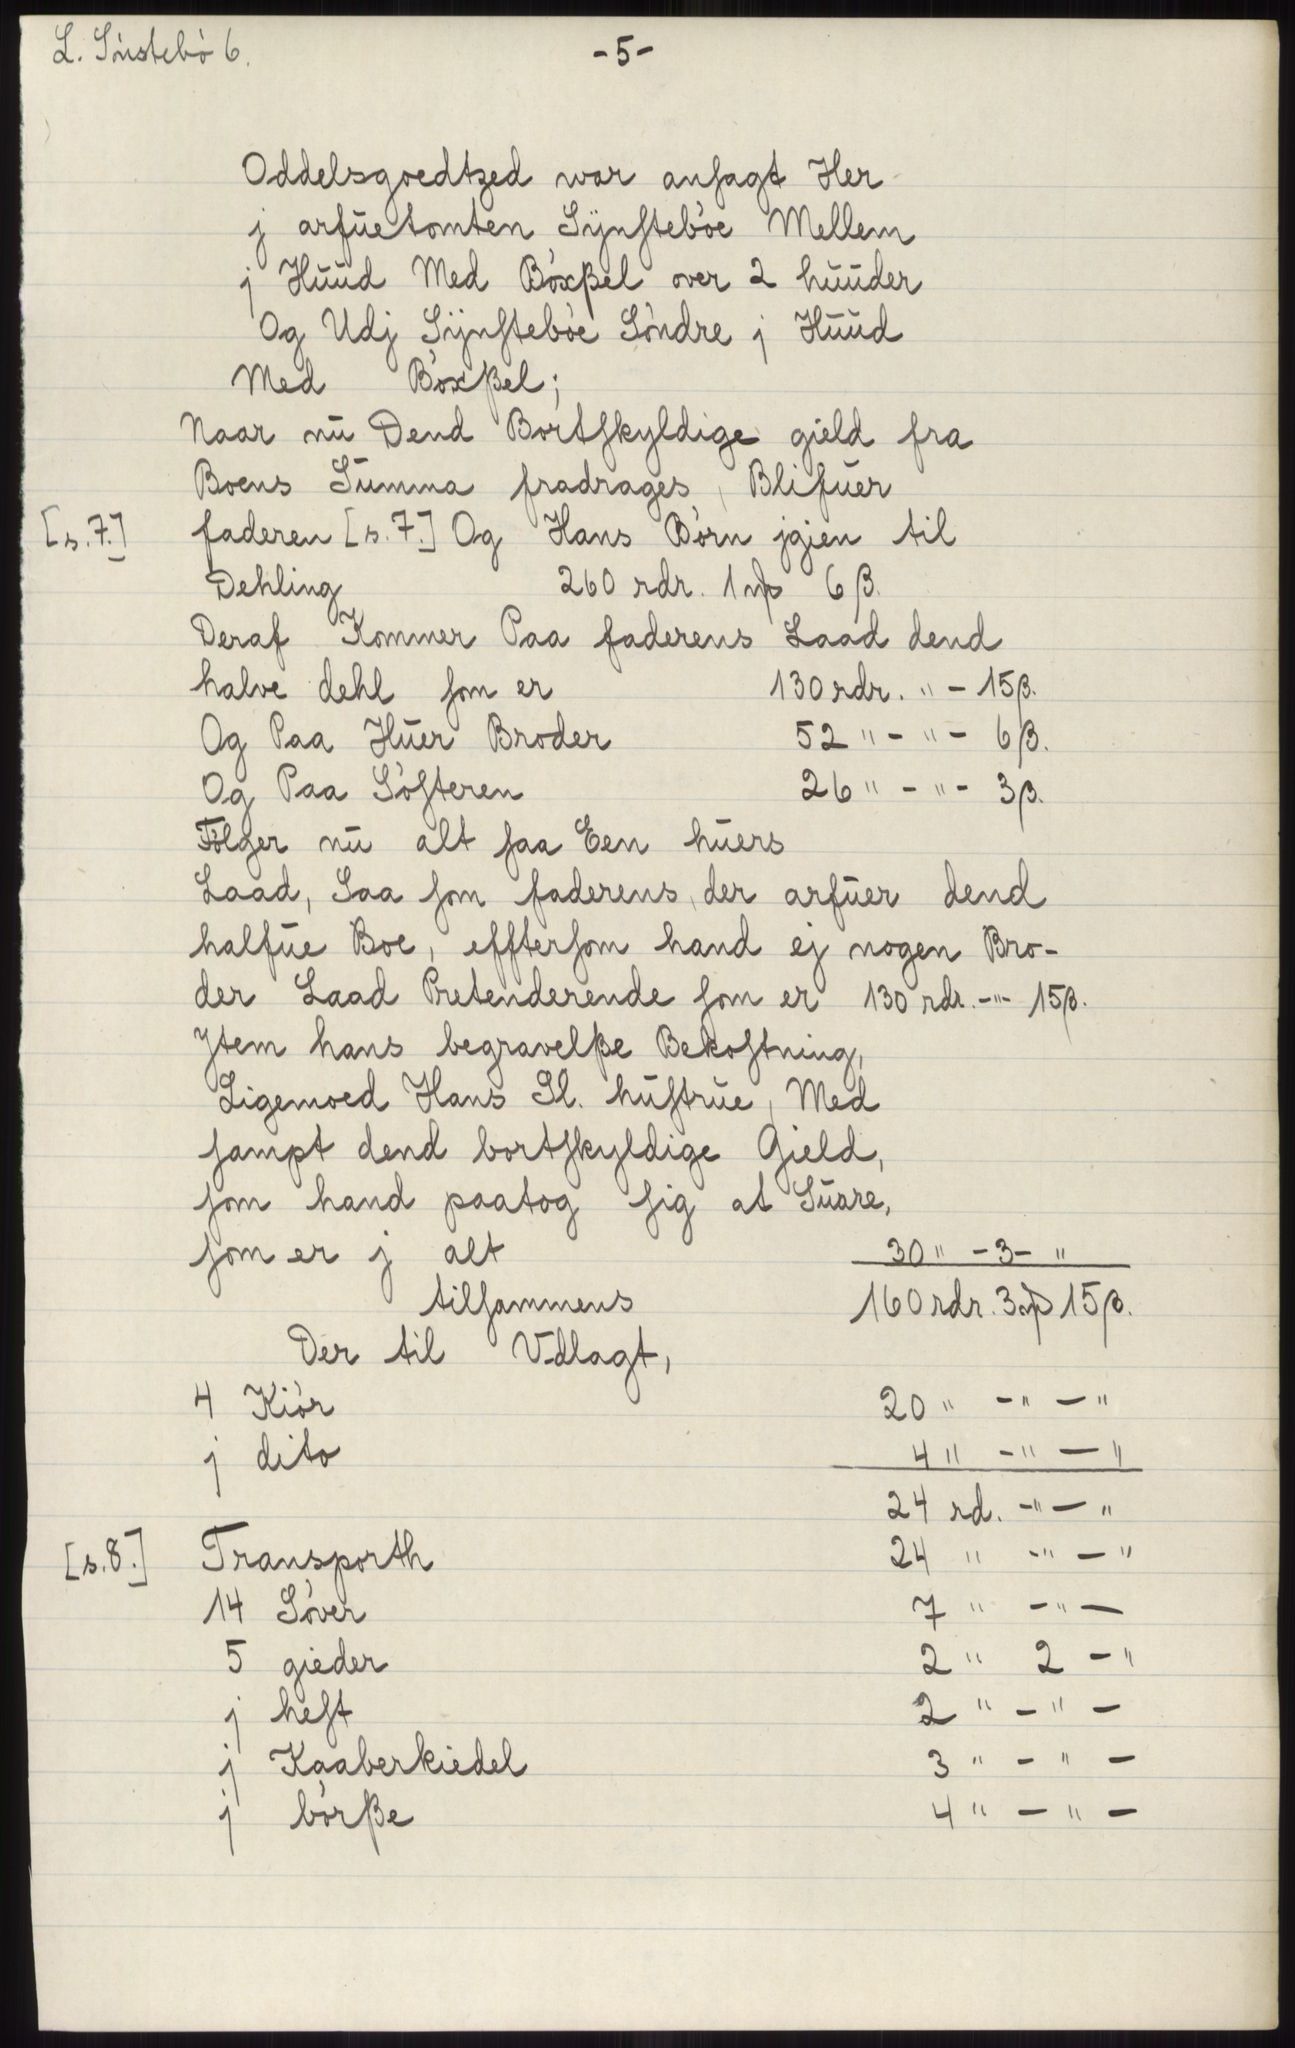 L. Sønstebø 6.
-5-
Oddelsgoedtzed war ansagt Her
j arfuetomten Sÿnstebøe Mellem
j Huud Med Bøxßel over 2 huuder
Og Udj Sÿnstebøe Søndre j Huud
Med Bøxßel;
Naar nu Dend Bortskyldige gield fra
Boens Summa fradrages, Blifuer
[s.7.] faderen [s.7.] Og Hans Børn jgien til
Dehling 260 rdr. 1 mþ 6 β.
Deraf Kommer Paa faderens Laad dend
halve dehl som er 130 rdr. " - 15 β.
Og Paa Huer Broder 52 " - " - 6 β.
Og Paa Søsteren 26 " - " - 3 β.
Følger nu alt saa Een huers
Laad, Saa som faderens, der arfuer dend
halfue Boe, efftersom hand ej nogen Bro-
der Laad Pretenderende som er 130 rdr. -"- 15 β.
Jtem hans begravelße Bekostning,
Ligemoed Hans Sl. hustrue, Med
sampt dend bortskyldige Gield,
som hand paatog sig at Suare,
som er j alt 30 " - 3 - "
tilsammens 160 rdr. 3 mþ 15 β.
Der til Vdlagt,
4 Kiør 20 " - " - "
j dito 4 " - " - "
24 rd. - " - "
[s.8.] Transporth 24 " - " - "
14 Søver 7 " - " -
5 gieder 2 " 2 - "
j hest 2 " - " -
j Kaaberkiedel 3 " - " -
j børße 4 " - " -